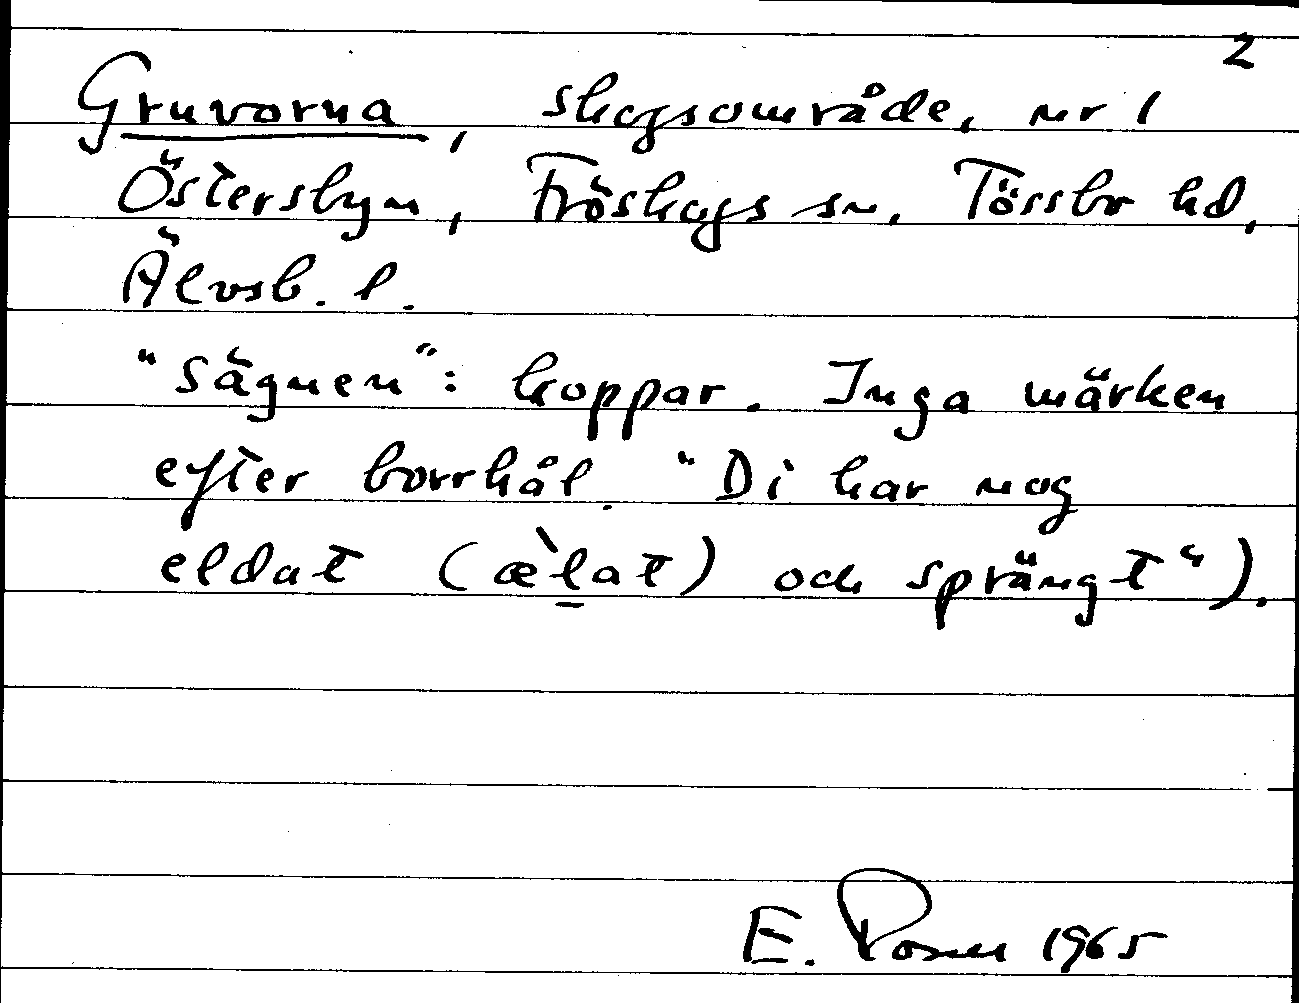 2
Gruvorna, skogsområde, nr 1
Östersbyn, Fröskogs sn, Tössbo hd,
Älvsb. l.
"Sägnen": koppar. Inga märken
efter borrhål. "Di har nog
eldat (æ̀l̠at) och sprängt").
E. 1965